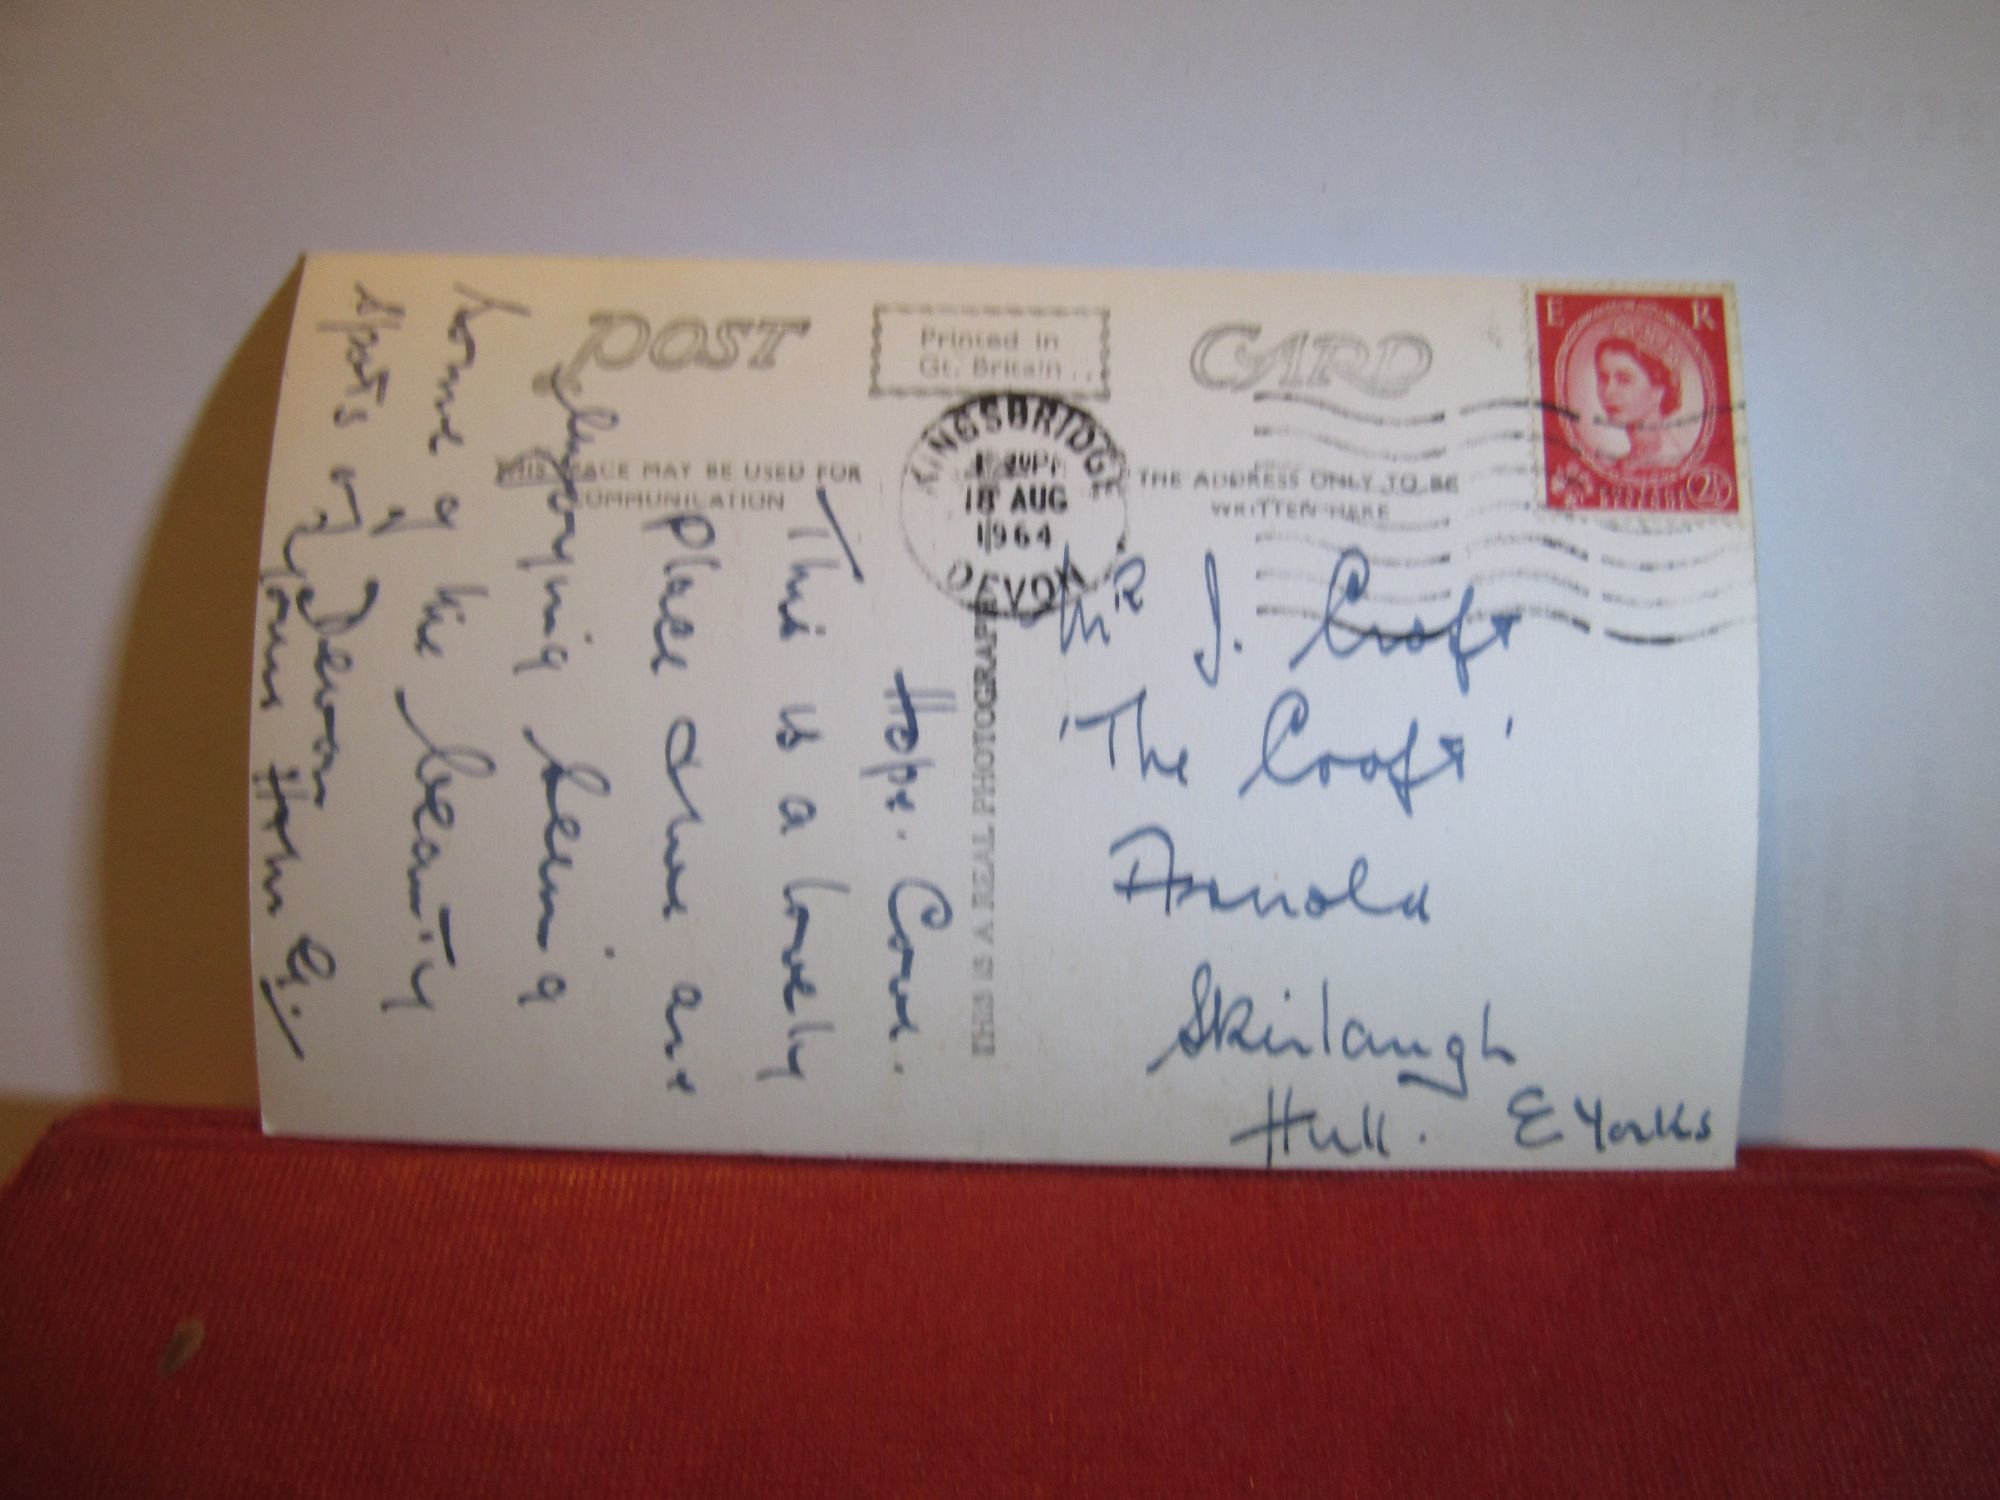 POST
Printed in
Gt. Britain
CARD
E R
POSTAGE
2½
KINGSBRIDGE
18 AUG
1964
DEVON
THIS SPACE MAY BE USED FOR
COMMUNICATION
THE ADDRESS ONLY TO BE
WRITTEN HERE
THIS IS A REAL PHOTOGRAPH
Hope. Cove.
This is a lovely
place & we are
enjoying seeing
some of the beauty
spots of Devon
yours
Mr J. Croft
'The Croft'
Arnold
Skirlaugh
Hull. E Yorks